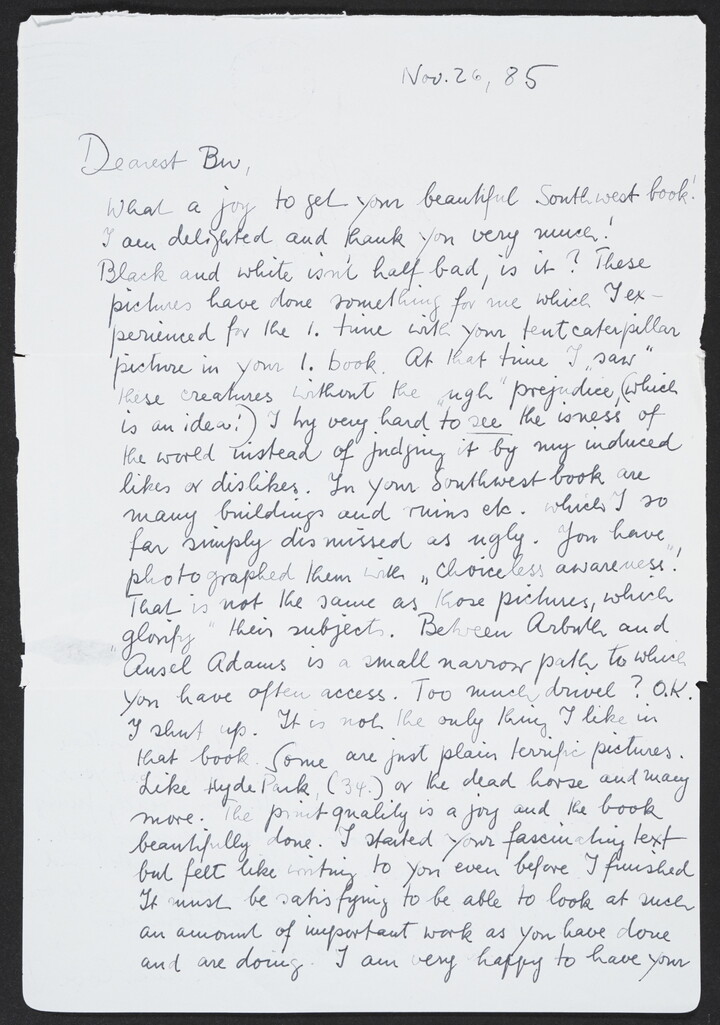 Nov. 26, 85
Dearest Bw,
What a joy to get your beautiful Southwest book!
I am delighted and thank you very much!
Black and white isn't half bad, is it? These
pictures have done something for me which I ex-
perienced for the 1. time with your tentcaterpillar
picture in your 1. book. At that time I „saw"
these creatures without the „ugh" prejudice, (which
is an idea!) I try very hard to see the isness of
the world instead of judging it by my induced
likes or dislikes. In your Southwest book are
many buildings and ruins etc. which I so
far simply dismissed as ugly. You have
photographed them with „choiceless awareness"!
That is not the same as those pictures, which
„glorify" their subjects. Between Arbuth and
Ansel Adams is a small narrow path to which
you have often access. Too much drivel? O.K.
I shut up. It is not the only thing I like in
that book. Some are just plain terrific pictures.
Like Hyde Park, (34.) or the dead horse and many
more. The print quality is a joy and the book
beautifully done. I started your fascinating text
but felt like writing to you even before I finished
It must be satisfying to be able to look at such
an amount of important work as you have done
and are doing. I am very happy to have your